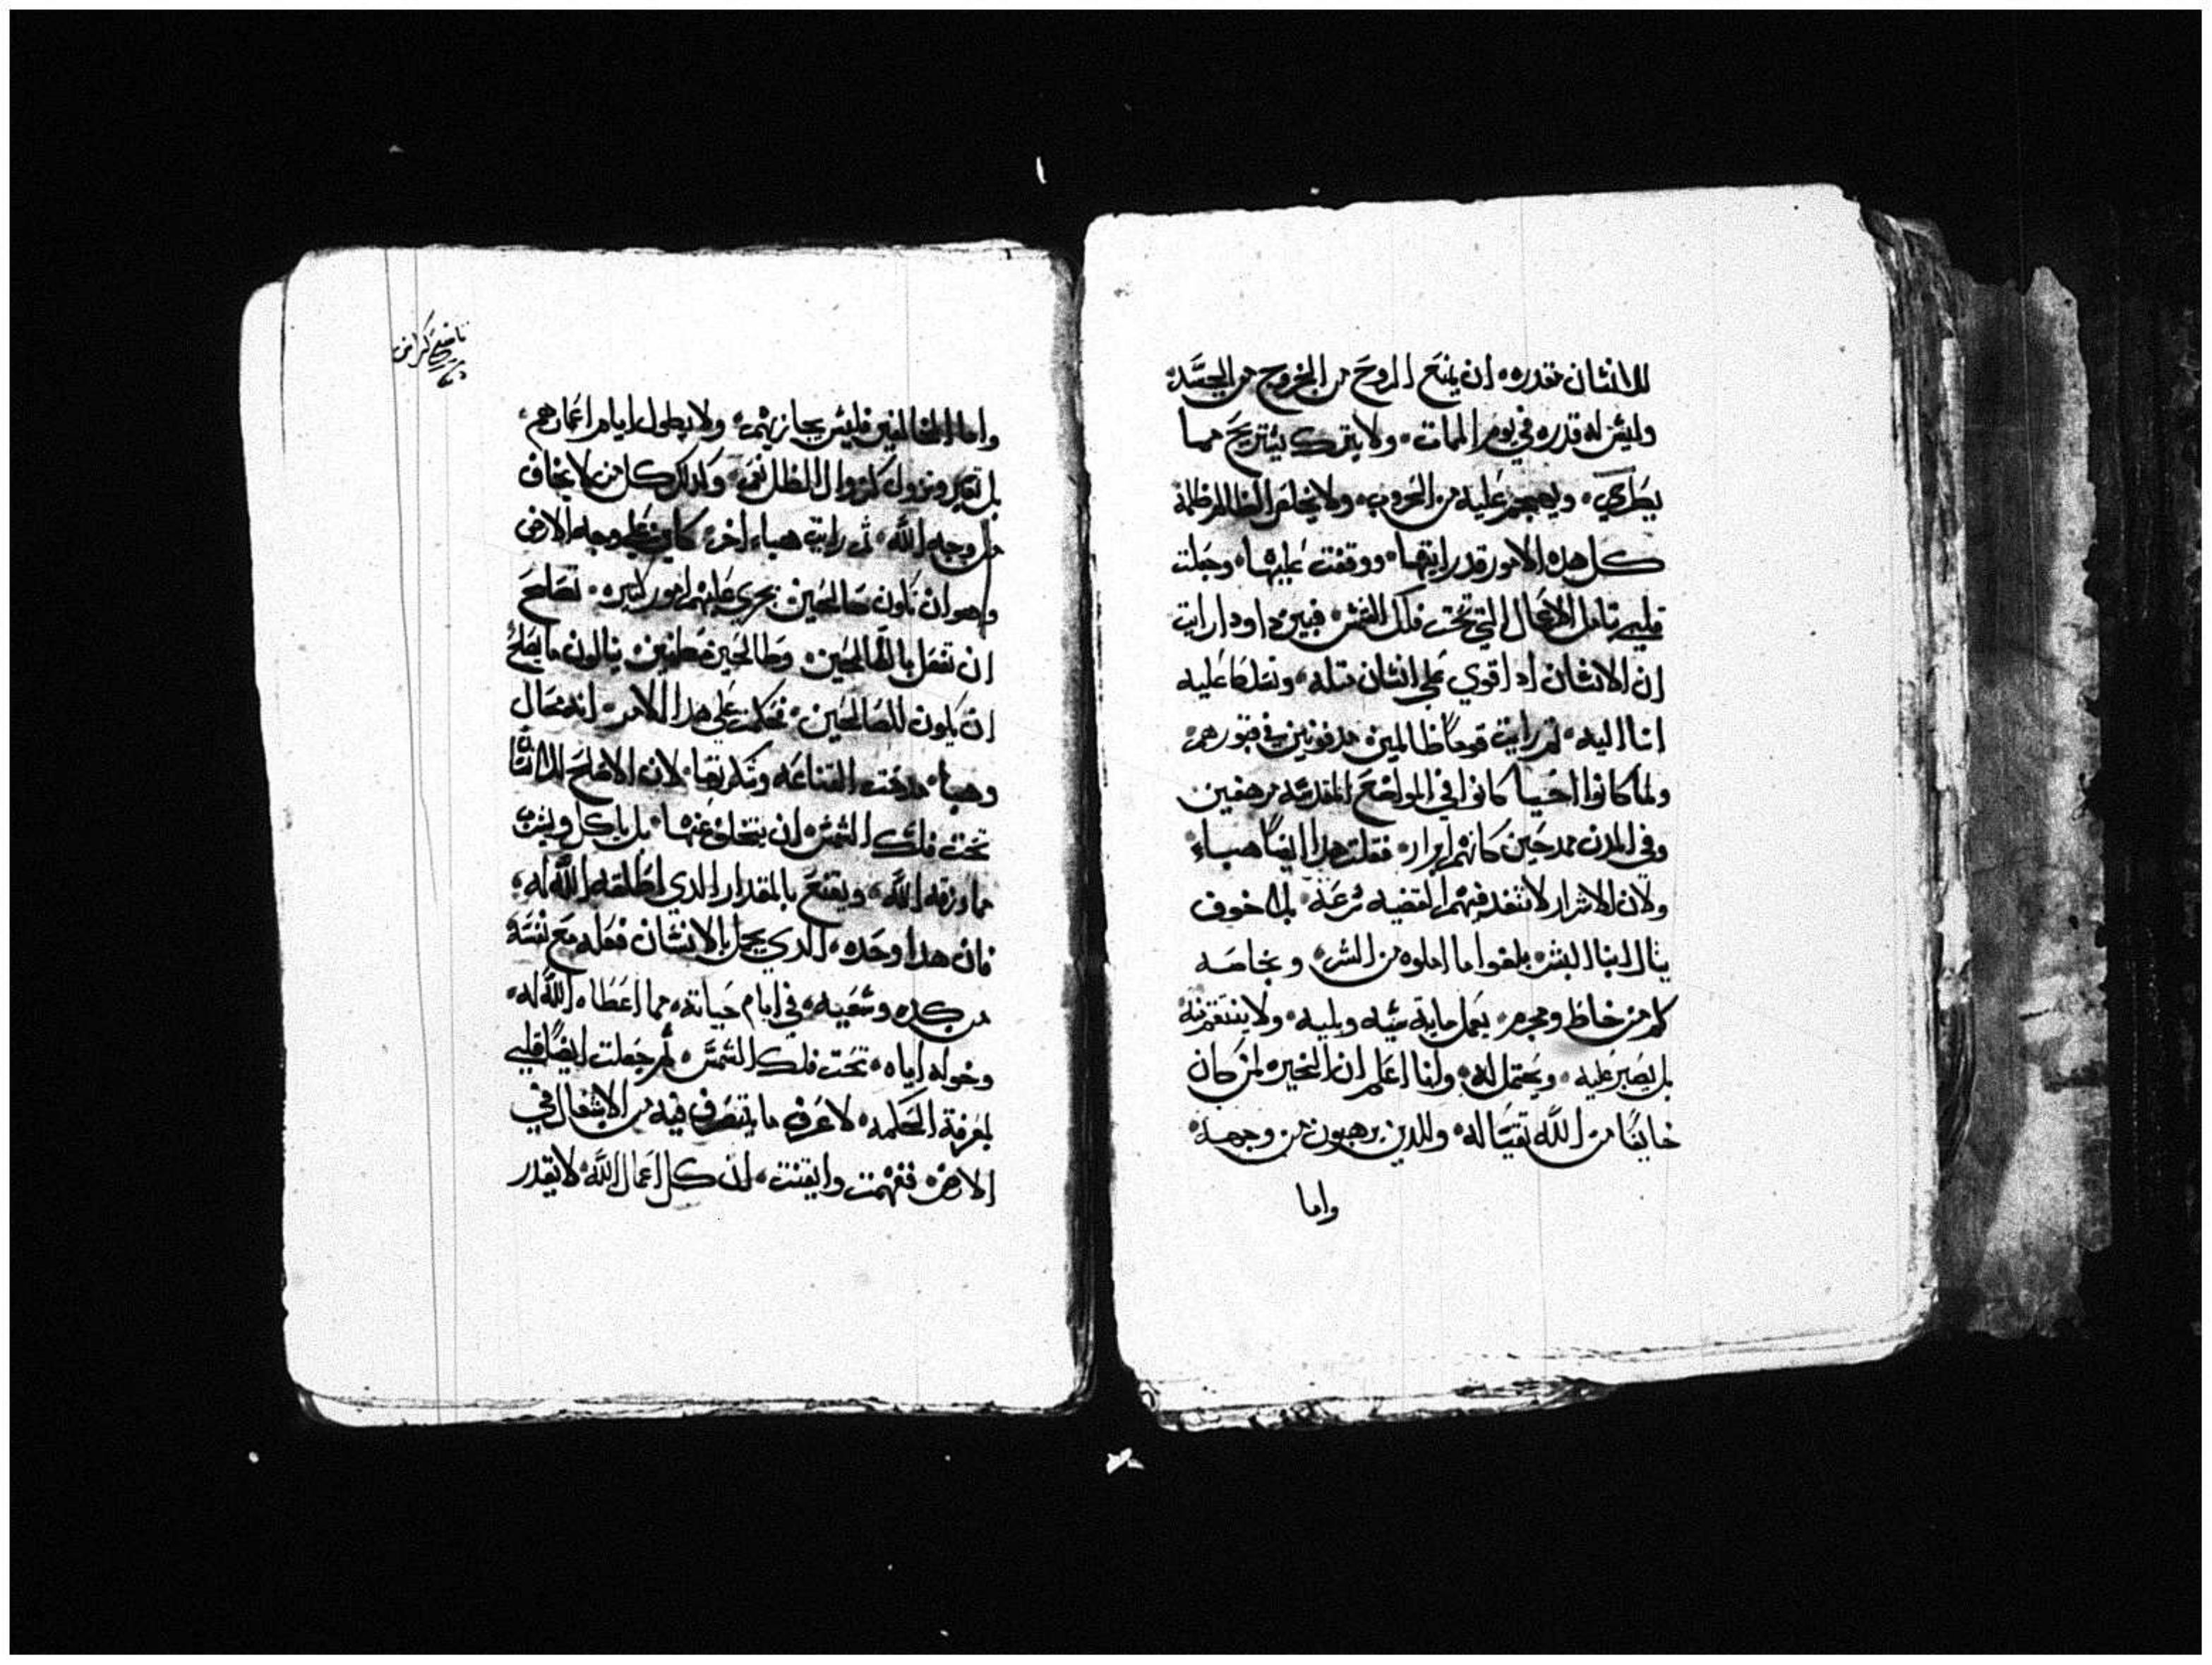 للانسان مقدره ان يمنع الروح من الخروج من الجسد
وليس له قدره في يوم الممات ولا يترك يستريح مما
ويهجم عليه من الحروب ولا يخلص الظالم ظلمه
كل هده الامور قد رايتها ووقفت عليها وجعلت
قلبي تامل الاعمال التي تحت فلك الشمس
ان الانسان ادا قوي على انسان قتله وتسلط عليه
اتا اليه ثم رايت قوما ظالمين مدفونين في قبورهم
ولما كانوا احيا كانوا في المواضع المقدسه
وفي المدن ممدحين كانهم ابرار فقلت هدا ايضا هباء
ولان الاشرار لا تنفد فيهم القضيه سرعة بلا خوف
ينال ابنا البشر بلغوا ما املوه من الشر وبخاصه
كل من خاطى ومجرم يعمل ماية سيه وبليه ولا ينتقم منه
بل يصبر عليه ويحتمل له وانا اعلم ان الخيره لمن كان
خايفا من الله تقيا له وللدين يرهبون من وجهه
واما
واما المخالفين فليس يجازيهم ولا يطول ايام اعمارهم
بل تعبر وتزول كزوال الظل وكدلك كل من لا يخاف
من وجه الله ثم رايت هباء اخر كاين على وجه الارض
وهو ان تكون صالحين يجري عليهم امور كتيره تصلح
ان تفعل بالطالحين وطالحين ينالون ما يصلح
ان تكون للصالحين فحكمت على هدا الامر انه محال
وهباء مدحت القناعه لان الاصلح للانسان
تحت فلك الشمس ان يتخلى عنها بل ياكل ويشرب
مما رزقه الله ويقنع بالمقدار الدي اطلقه الله له
فان هدا وحده الدي يجمل بالانسان فعله مع نفسه
من كده وسعيه في ايام حياته مما اعطاه الله له
وخوله اياه تحت فلك الشمس ثم جعلت ايضا قلبي
لمعرفة الحكمه لاعرف ما يتصرف فيه من الاشغال في
الارض ففهمت وايقنت ان كل اعمال الله لا يقدر